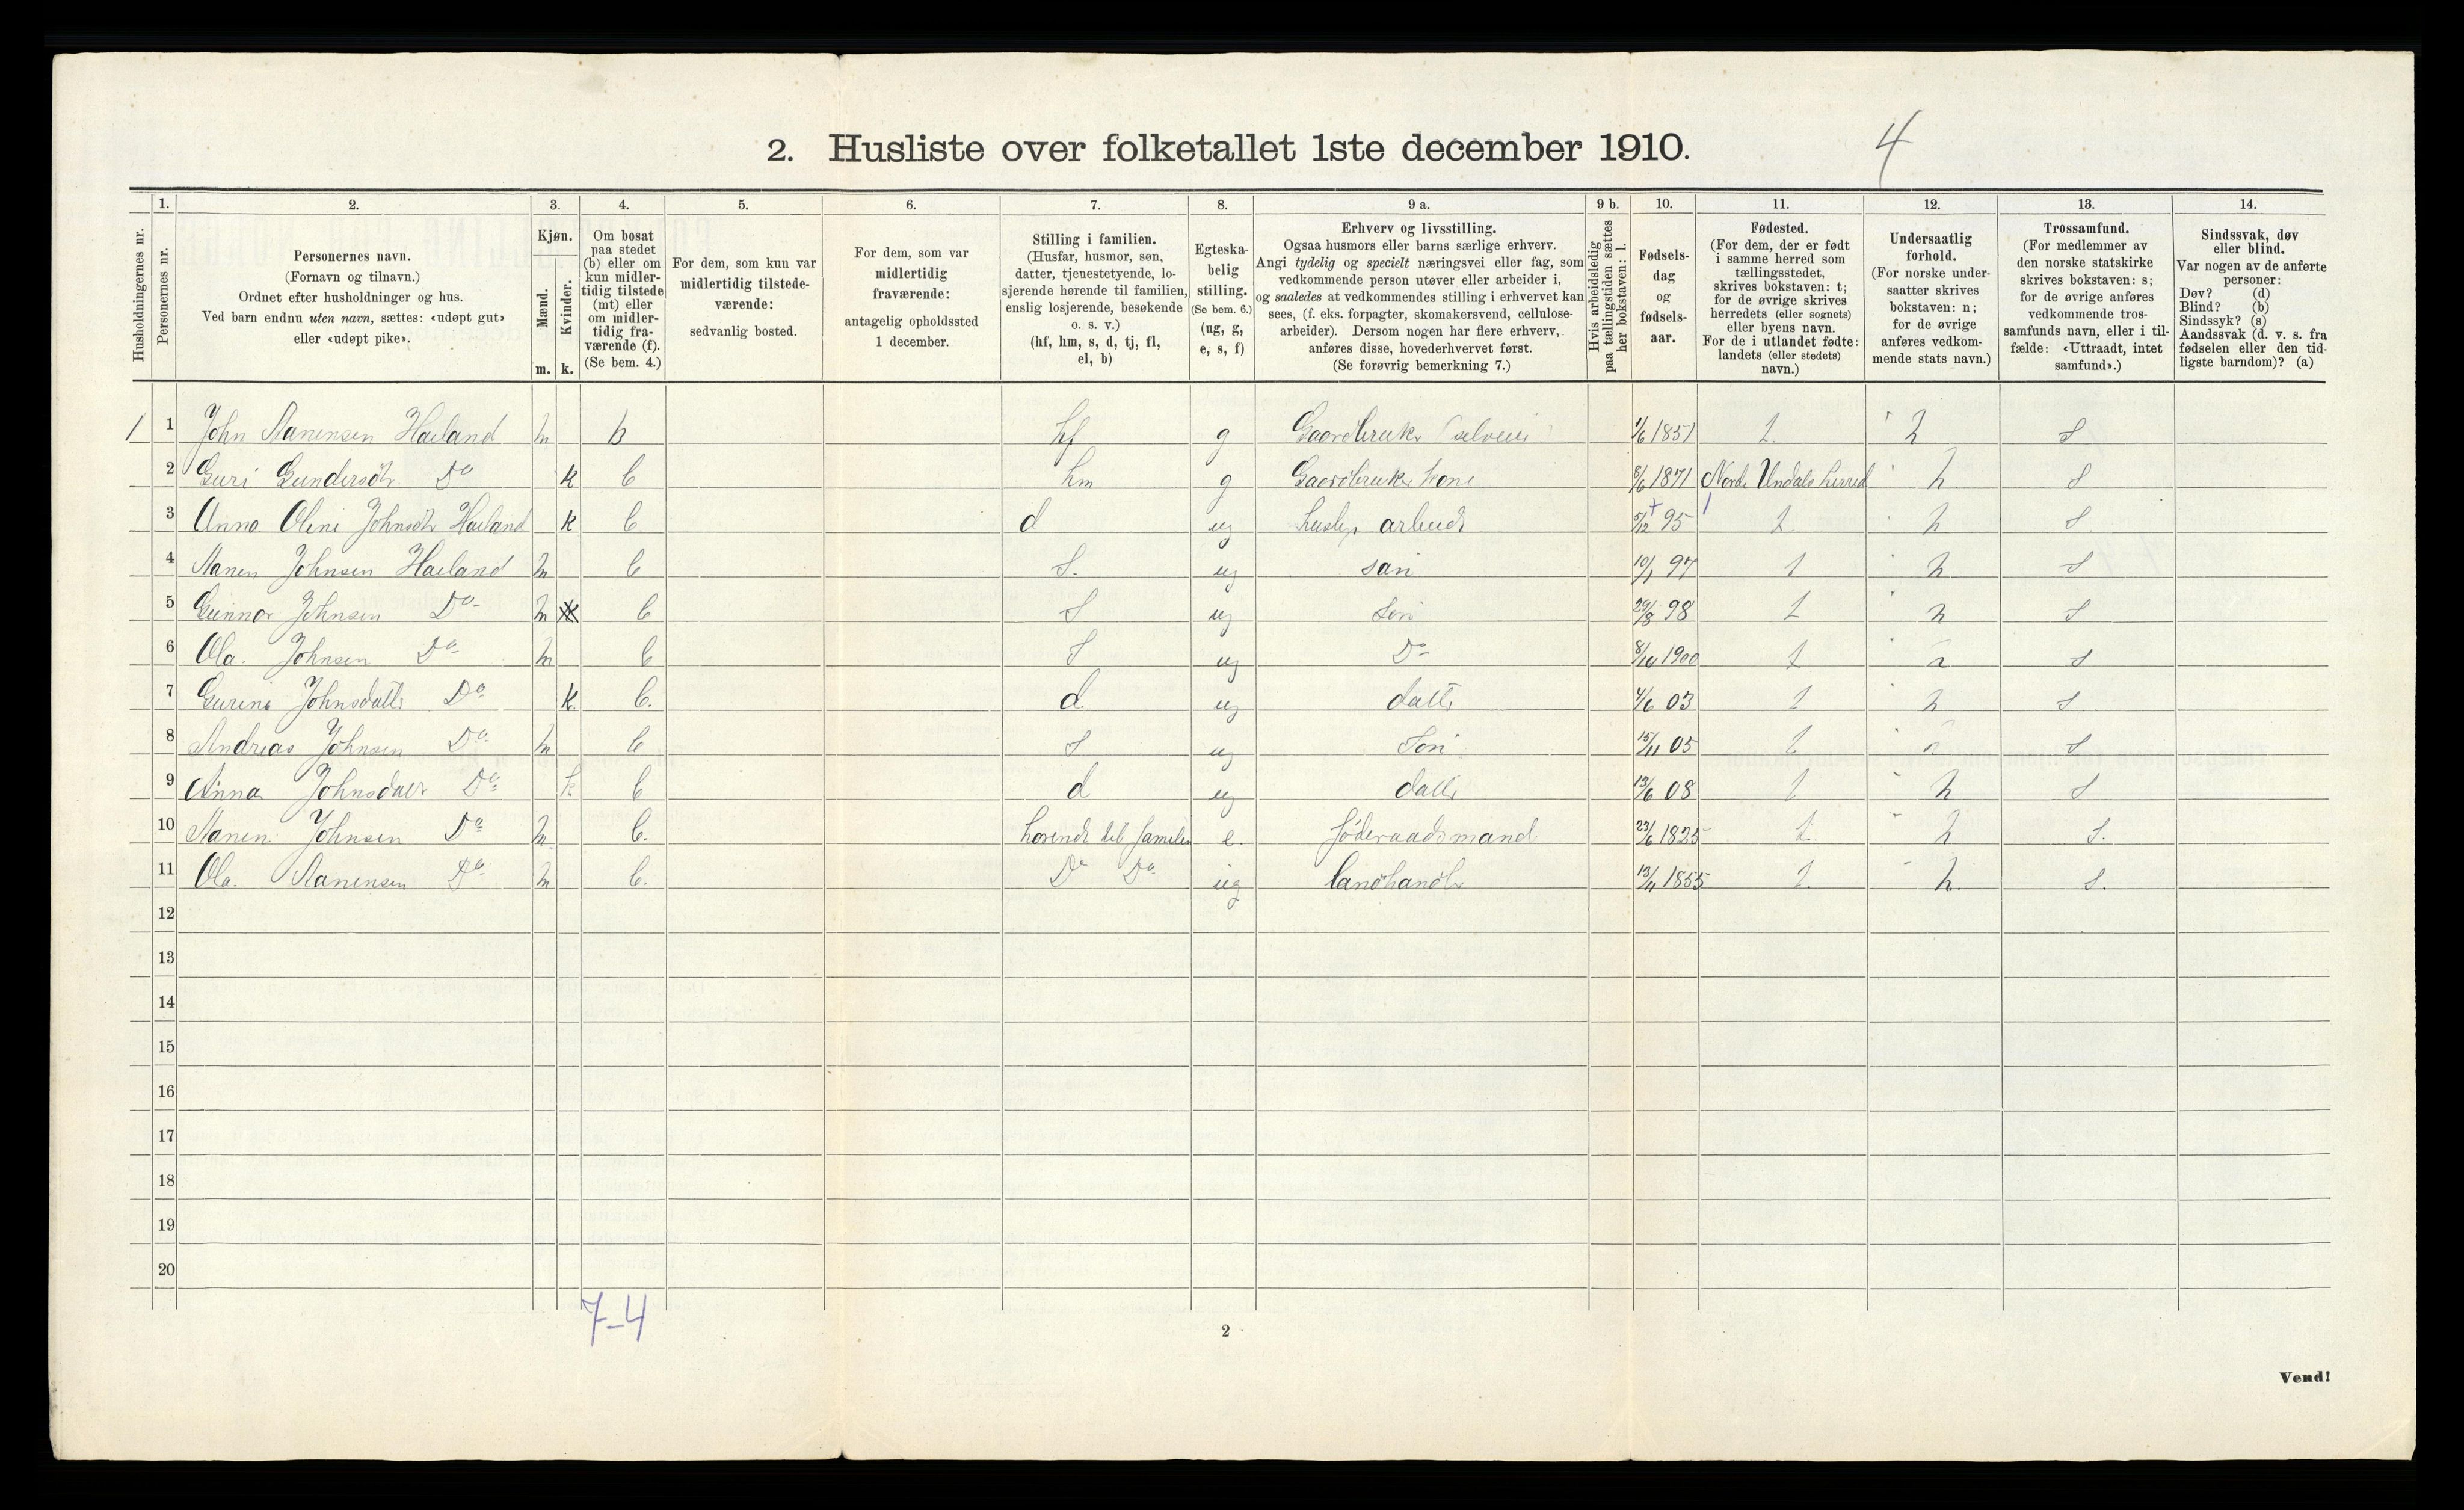 2. Husliste over folketallet 1ste december 1910. 4
Husholdningernes nr.
1. Personernes nr.
2. Personernes navn. (Fornavn og tilnavn.) Ordnet efter husholdninger og hus. Ved barn endnu uten navn, sættes: «udøpt gut» eller «udøpt pike».
3. Kjøn. Mænd. m. Kvinder. k.
4. Om bosat paa stedet (b) eller om kun midlertidig tilstede (mt) eller om midlertidig fraværende (f). (Se bem. 4.)
5. For dem, som kun var midlertidig tilstedeværende: sedvanlig bosted.
6. For dem, som var midlertidig fraværende: antagelig opholdssted 1 december.
7. Stilling i familien. (Husfar, husmor, søn, datter, tjenestetyende, losjerende hørende til familien, enslig losjerende, besøkende o. s. v.) (hf, hm, s, d, tj, fl, el, b)
8. Egteskabelig stilling. (Se bem. 6.) (ug, g, e, s, f)
9 a. Erhverv og livsstilling. Ogsaa husmors eller barns særlige erhverv. Angi tydelig og specielt næringsvei eller fag, som vedkommende person utøver eller arbeider i, og saaledes at vedkommendes stilling i erhvervet kan sees, (f. eks. forpagter, skomakersvend, cellulosearbeider). Dersom nogen har flere erhverv, anføres disse, hovederhvervet først. (Se forøvrig bemerkning 7.)
9 b. Hvis arbeidsledig paa tællingstiden sættes her bokstaven: l.
10. Fødselsdag og fødselsaar.
11. Fødested. (For dem, der er født i samme herred som tællingsstedet, skrives bokstaven: t; for de øvrige skrives herredets (eller sognets) eller byens navn. For de i utlandet fødte: landets (eller stedets) navn.)
12. Undersaatlig forhold. (For norske undersaatter skrives bokstaven: n; for de øvrige anføres vedkommende stats navn.)
13. Trossamfund. (For medlemmer av den norske statskirke skrives bokstaven: s; for de øvrige anføres vedkommende trossamfunds navn, eller i tilfælde: «Uttraadt, intet samfund».)
14. Sindssvak, døv eller blind. Var nogen av de anførte personer: Døv? (d) Blind? (b) Sindssyk? (s) Aandssvak (d. v. s. fra fødselen eller den tidligste barndom)? (a)
1 1 John Aanensen Haeland m b hf g Gaardbruker (selveier) 1/6 1851 t n s
2 Guri Gundersdtr. Do k b hm g Gaardbruker kone 8/6 1871 Nord. Undals herred n s
3 Anna Oline Johnsdtr Haeland k b d ug husly arbeide 5/12 95 t n s
4 Aanen Johnsen Haeland m b s. ug søn 10/1 97 t n s
5 Gunnar Johnsen Do m b s ug søn 29/8 98 t n s
6 Ola. Johnsen Do m b s ug Do 8/10 1900 t n s
7 Gurine Johnsdatter Do k. b. d. ug datter 4/6 03 t n s
8 Andreas Johnsen Do m b s ug søn 15/11 05 t n s
9 Anna Johnsdatr Do k b d ug datter 13/6 08 t n s
10 Aanen Johnsen Do m. b. hørende til familien e. føderaadsmand 23/6 1825 t. n s.
11 Ola. Aanensen Do m b. Do Do ug landhandler 13/11 1855 t. n. s.
12
13
14
15
16
17
18
19
20
7-4
2
Vend!